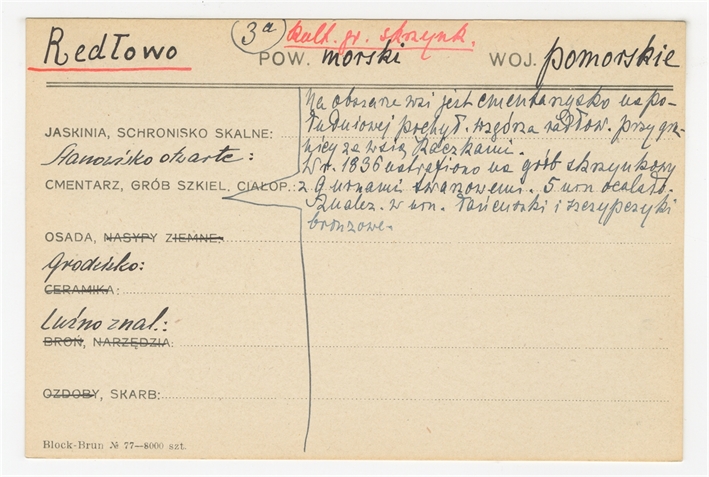 Redłowo
3a
Kult. gr. skrzynk.
POW. morski
WOJ. pomorskie
Na obszarze wsi jest cmentarzysko na po-
łudniowej pochył. wzgórza radłow. przy gra-
nicy ze wsią Kaczkami.
W r. 1836 natrafiono na grób skrzynkowy
z 9 urnami twarzowemi. 5 urn ocalało.
Znalez. w urn. łańcuszki i szczypczyki
bronzowe.
JASKINIA, SCHRONISKO SKALNE:
Stanowisko otwarte:
CMENTARZ, GRÓB SZKIEL. CIAŁOP.:
OSADA, NASYPY ZIEMNE:
Grodzisko:
CERAMIKA:
Luźno znal.:
BROŃ, NARZĘDZIA:
OZDOBY, SKARB:
Block-Brun № 77—8000 szt.